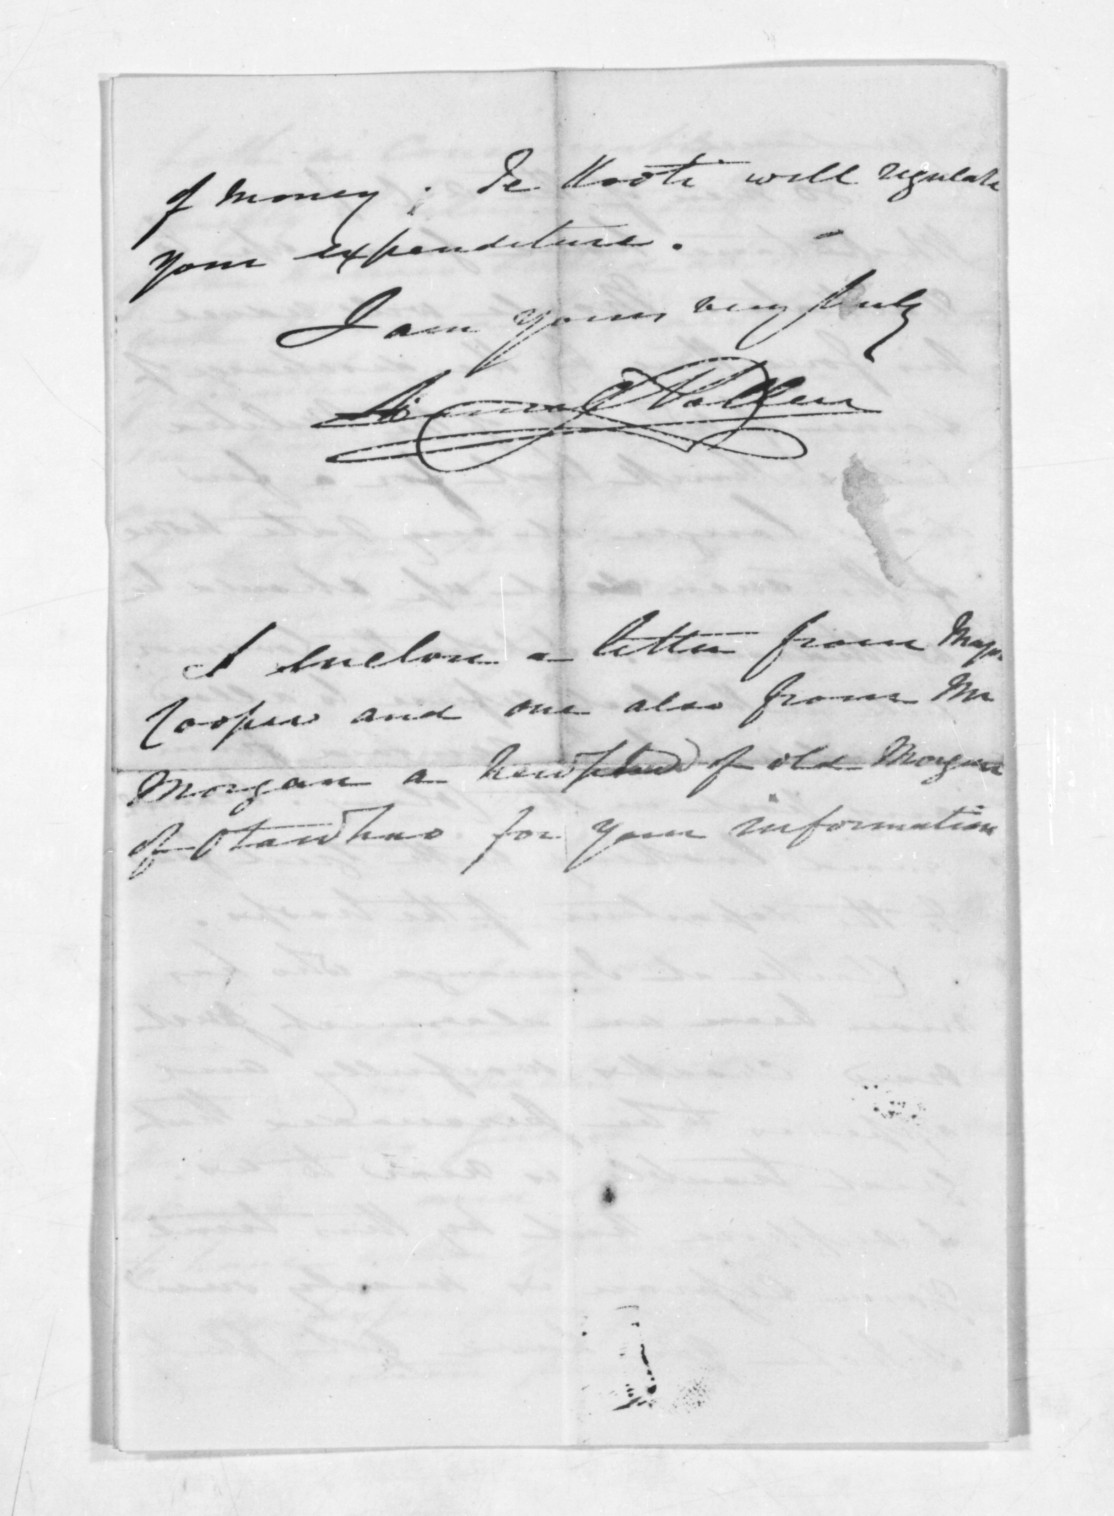 of money; Te Kooti will regulate
your expenditure.
I am yours very truly
Walker
I enclose a letter from Major
Cooper and one also from Mr
Morgan a nephew of old Morgan
of Otawhao for your information